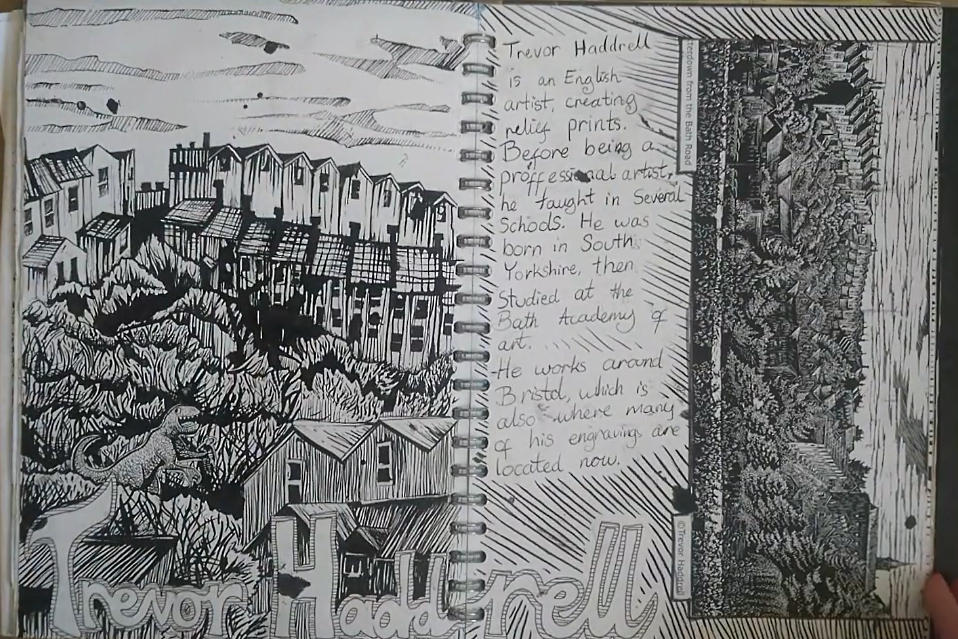 Trevor Haddrell
is an English
artist, creating
relief prints.
Before being a
proffessional artist,
he taught in Several
Schools. He was
born in South
Yorkshire, then
Studied at the
Bath Academy of
art.
He works around
Bristol, which is
also where many
of his engravings are
located now.
terdown from the Bath Road
© Trevor Haddrell
Trevor Haddrell